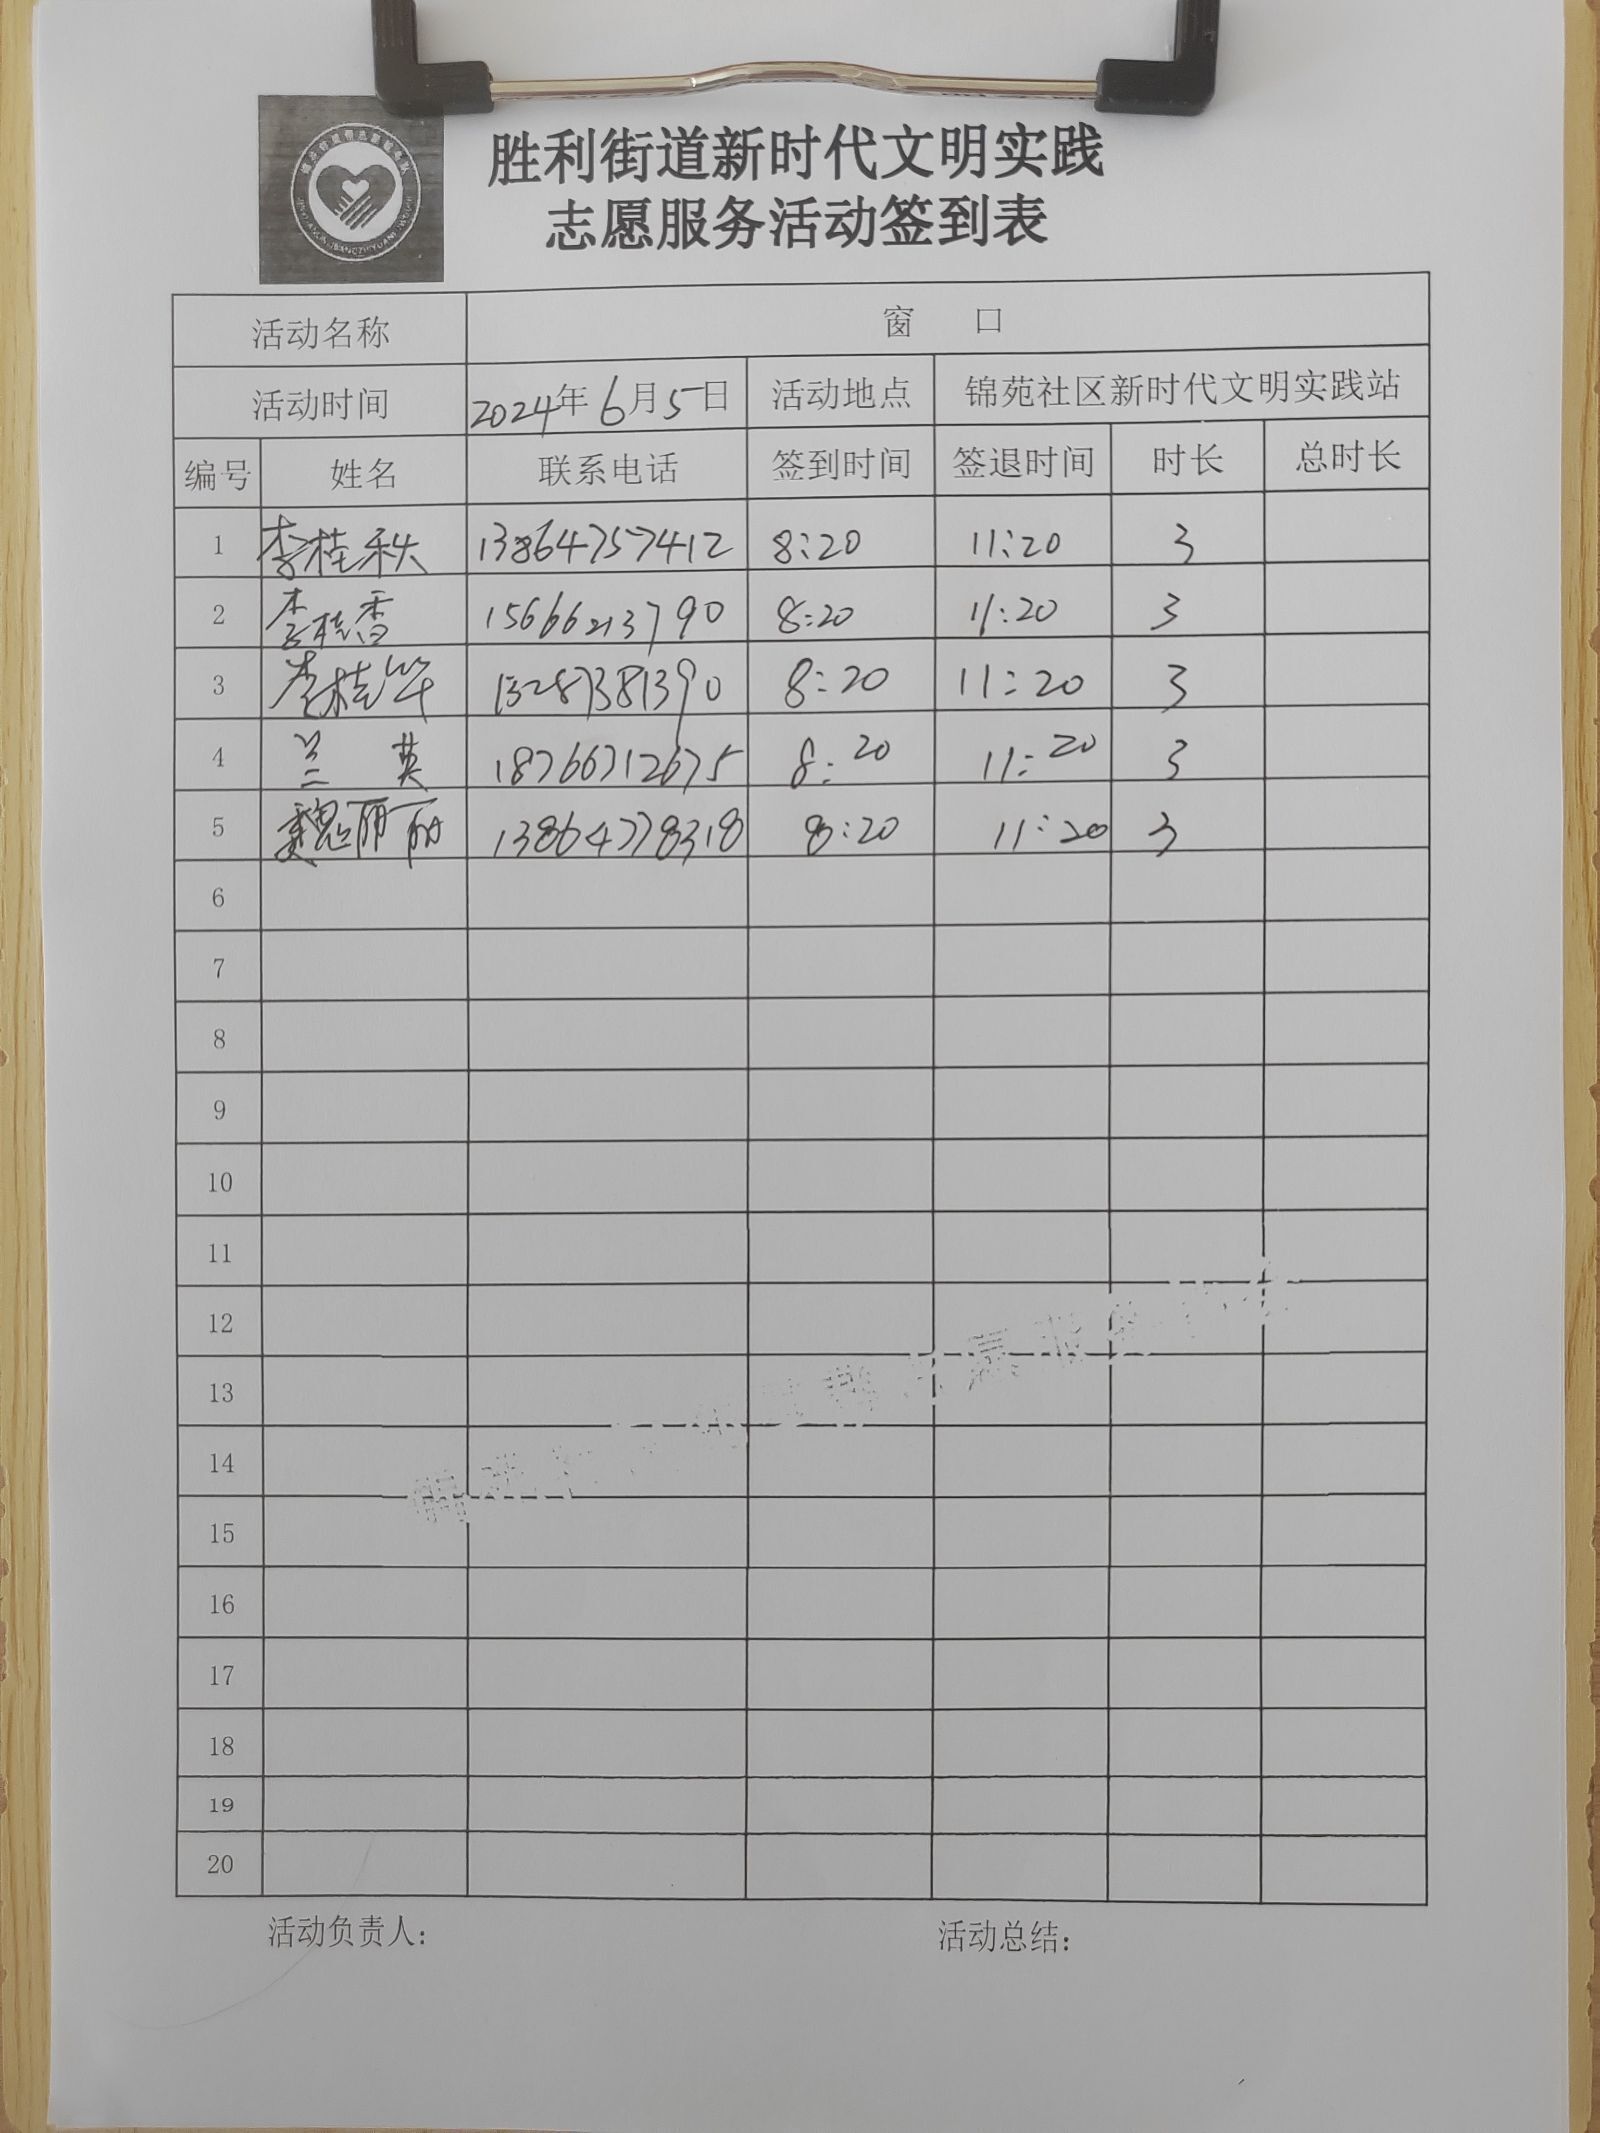 胜利街道新时代文明实践
志愿服务活动签到表
活动名称 窗 口
活动时间 2024年6月5日 活动地点 锦苑社区新时代文明实践站
编号 姓名 联系电话 签到时间 签退时间 时长 总时长
1 李桂秋 13864757412 8:20 11:20 3
2 李桂香 15666213790 8:20 11:20 3
3 李桂华 13287381390 8:20 11:20 3
4 兰英 18766712675 8:20 11:20 3
5 魏丽丽 13864778318 8:20 11:20 3
6
7
8
9
10
11
12
13
14
15
16
17
18
19
20
活动负责人: 活动总结: